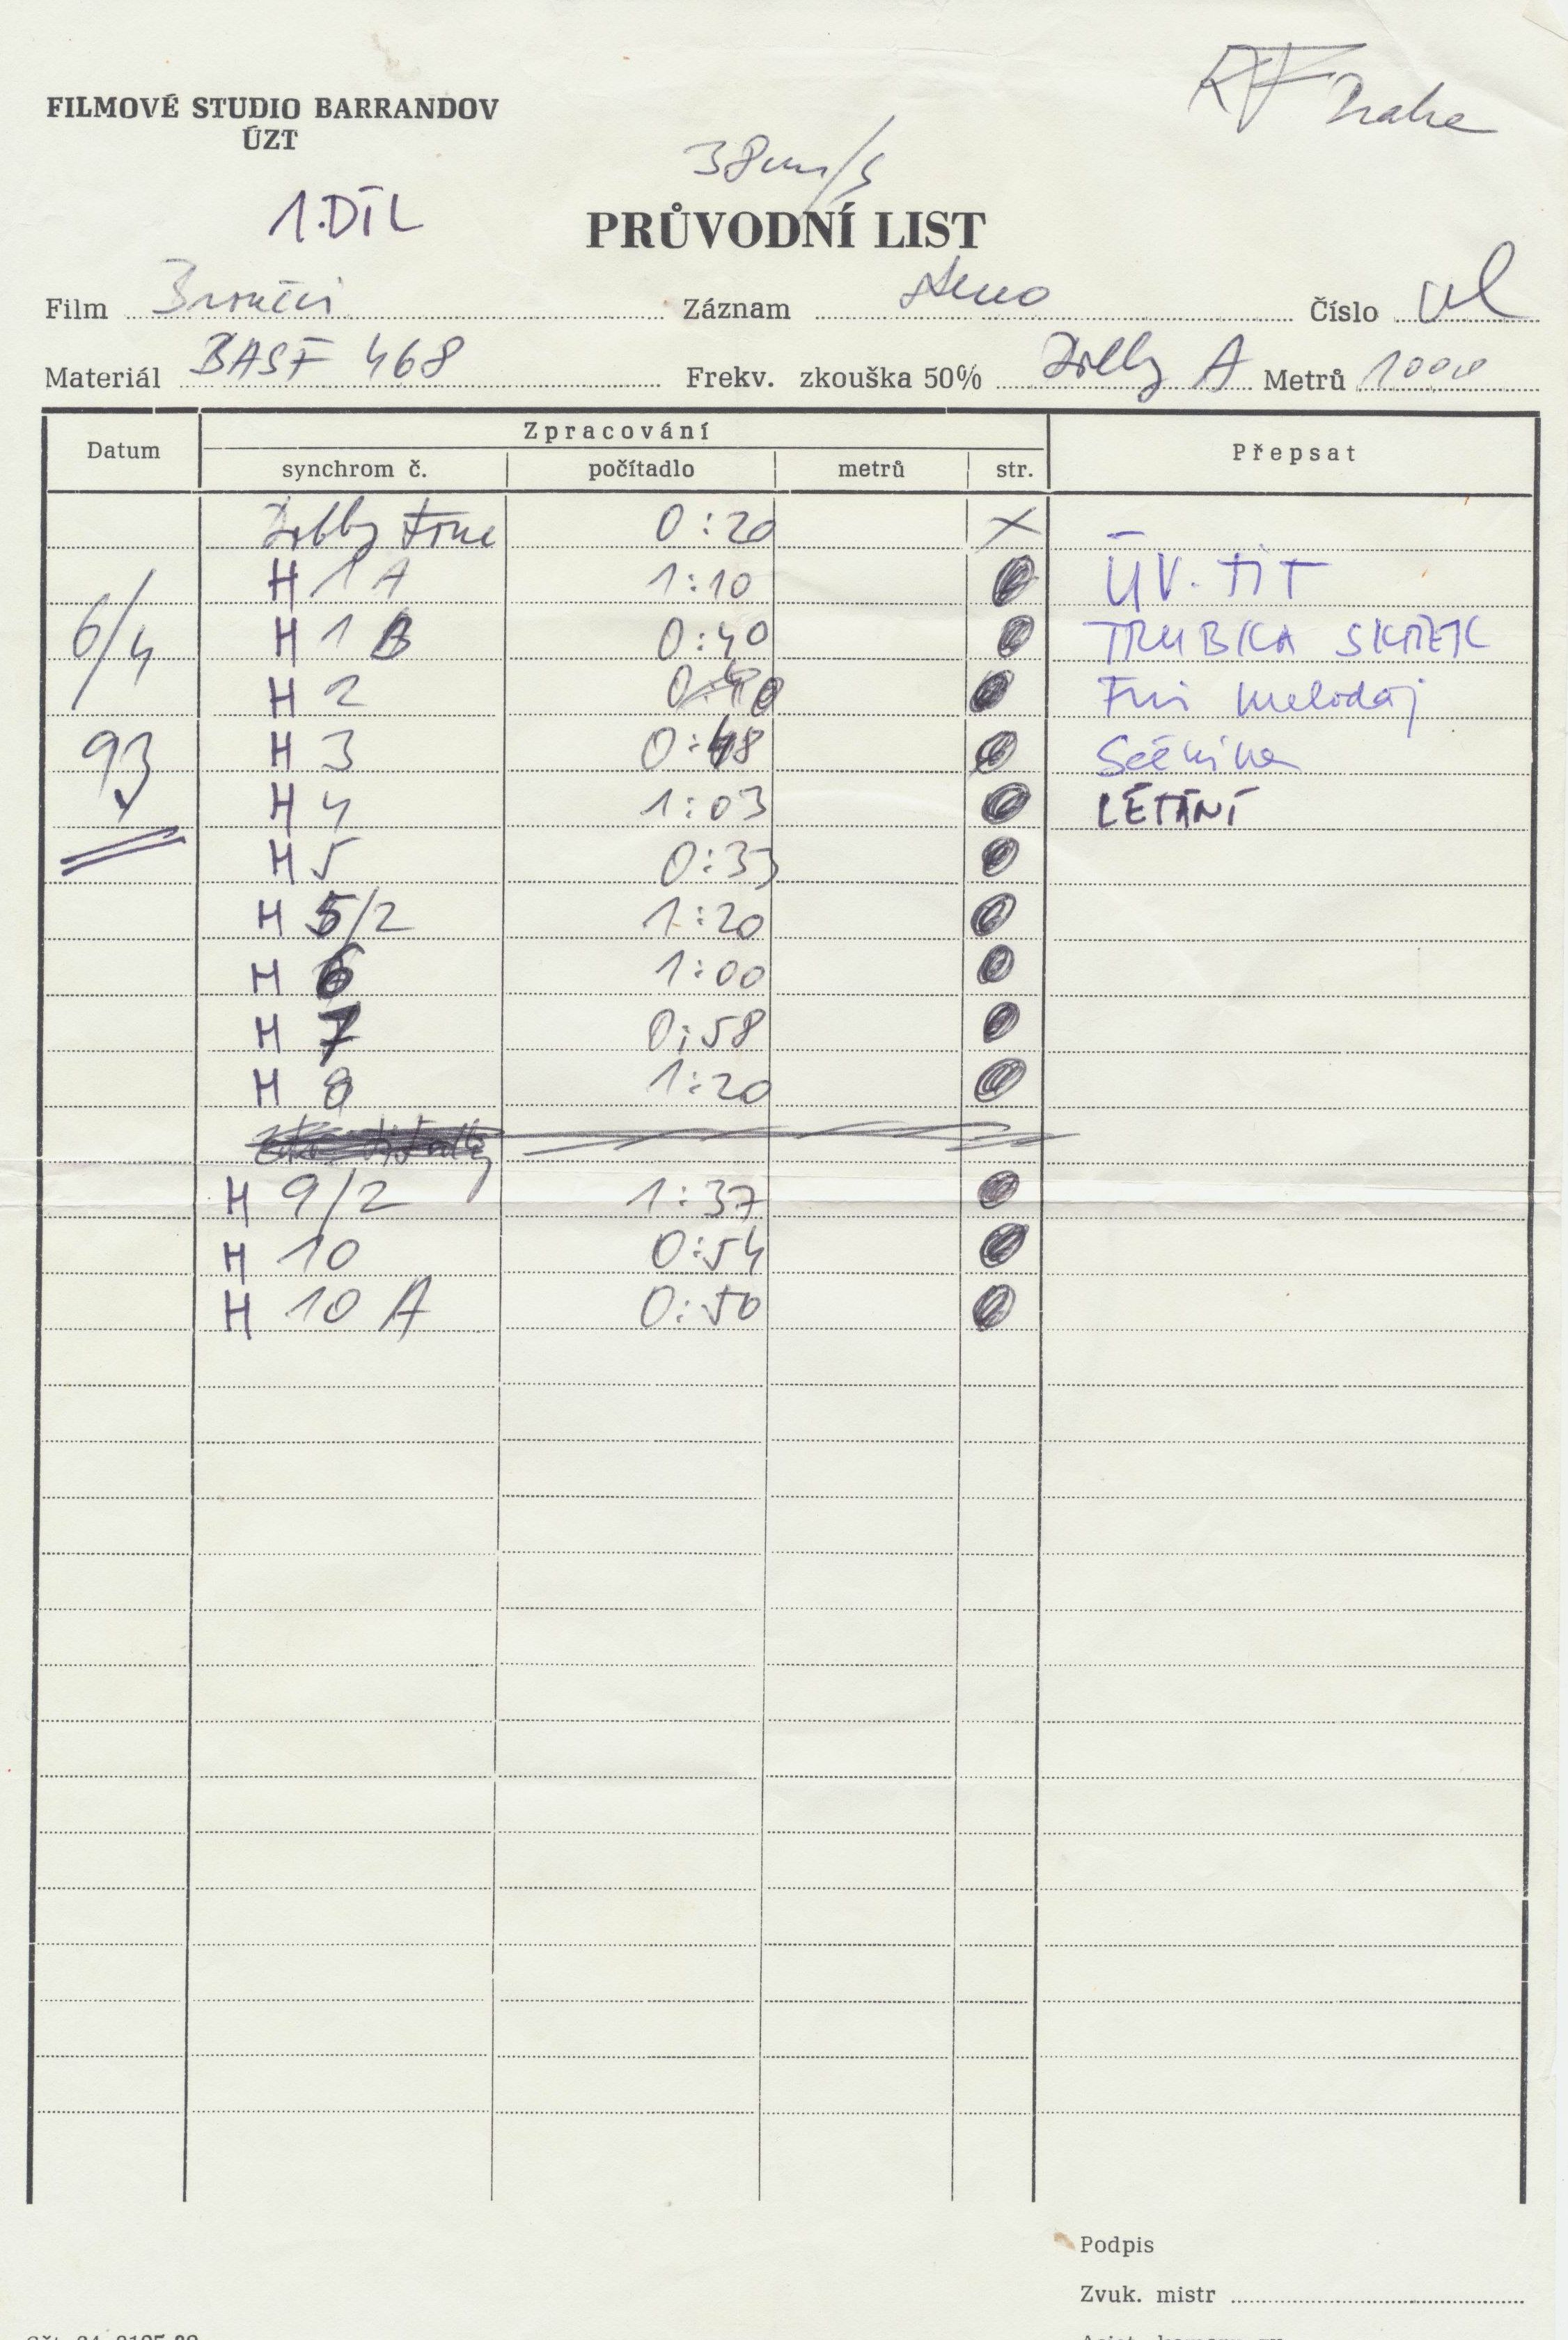 KF Praha
FILMOVÉ STUDIO BARRANDOV
ÚZT
38cm/s
1.DÍL
PRŮVODNÍ LIST
Film Broučci Záznam stereo Číslo
Materiál BASF 468 Frekv. zkouška 50% Dolby A Metrů 1000
Datum Zpracování Přepsat
synchrom č. počítadlo metrů str.
Dolby tone 0:20 X
H 1 A 1:10 ÚV. TIT
6/4 H 1 B 0:40 TRUBKA SKŘEK
H 2 melodaj
93 H 3 0:48
H 4 1:03 LÉTÁNÍ
H 5 0:33
H 5/2 1:20
H 6 1:00
H 7 0:58
H 8 1:20
H 9/2 1:37
H 10 0:54
H 10 A 0:50
Podpis
Zvuk. mistr